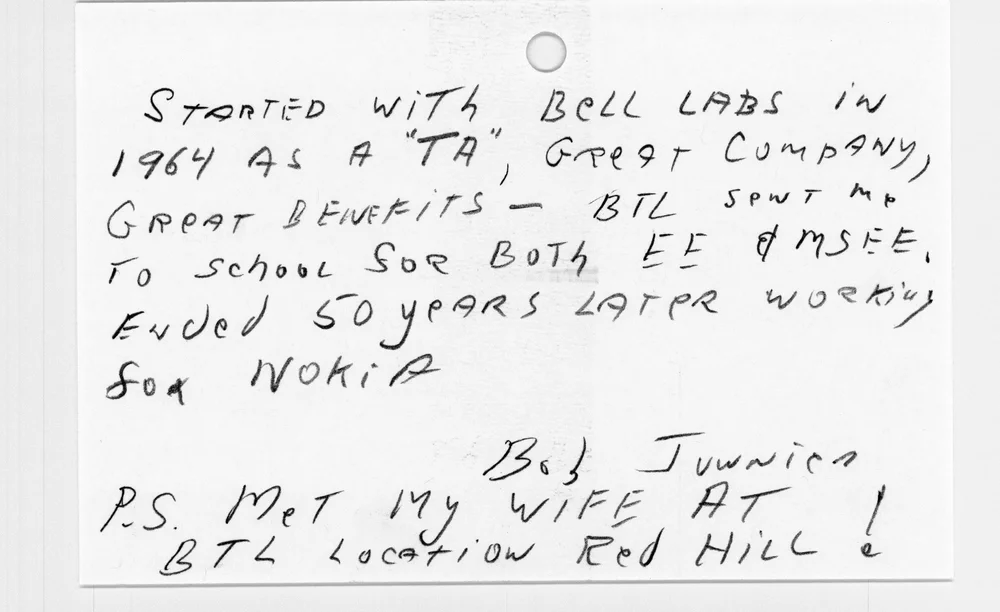 STARTED WITH BELL LABS IN
1964 AS A "TA", GREAT COMPANY,
GREAT BENEFITS — BTL SENT ME
TO SCHOOL FOR BOTH EE & MSEE.
ENDED 50 YEARS LATER WORKING
FOR NOKIA
Bob
P.S. MET MY WIFE AT
BTL LOCATION RED HILL !